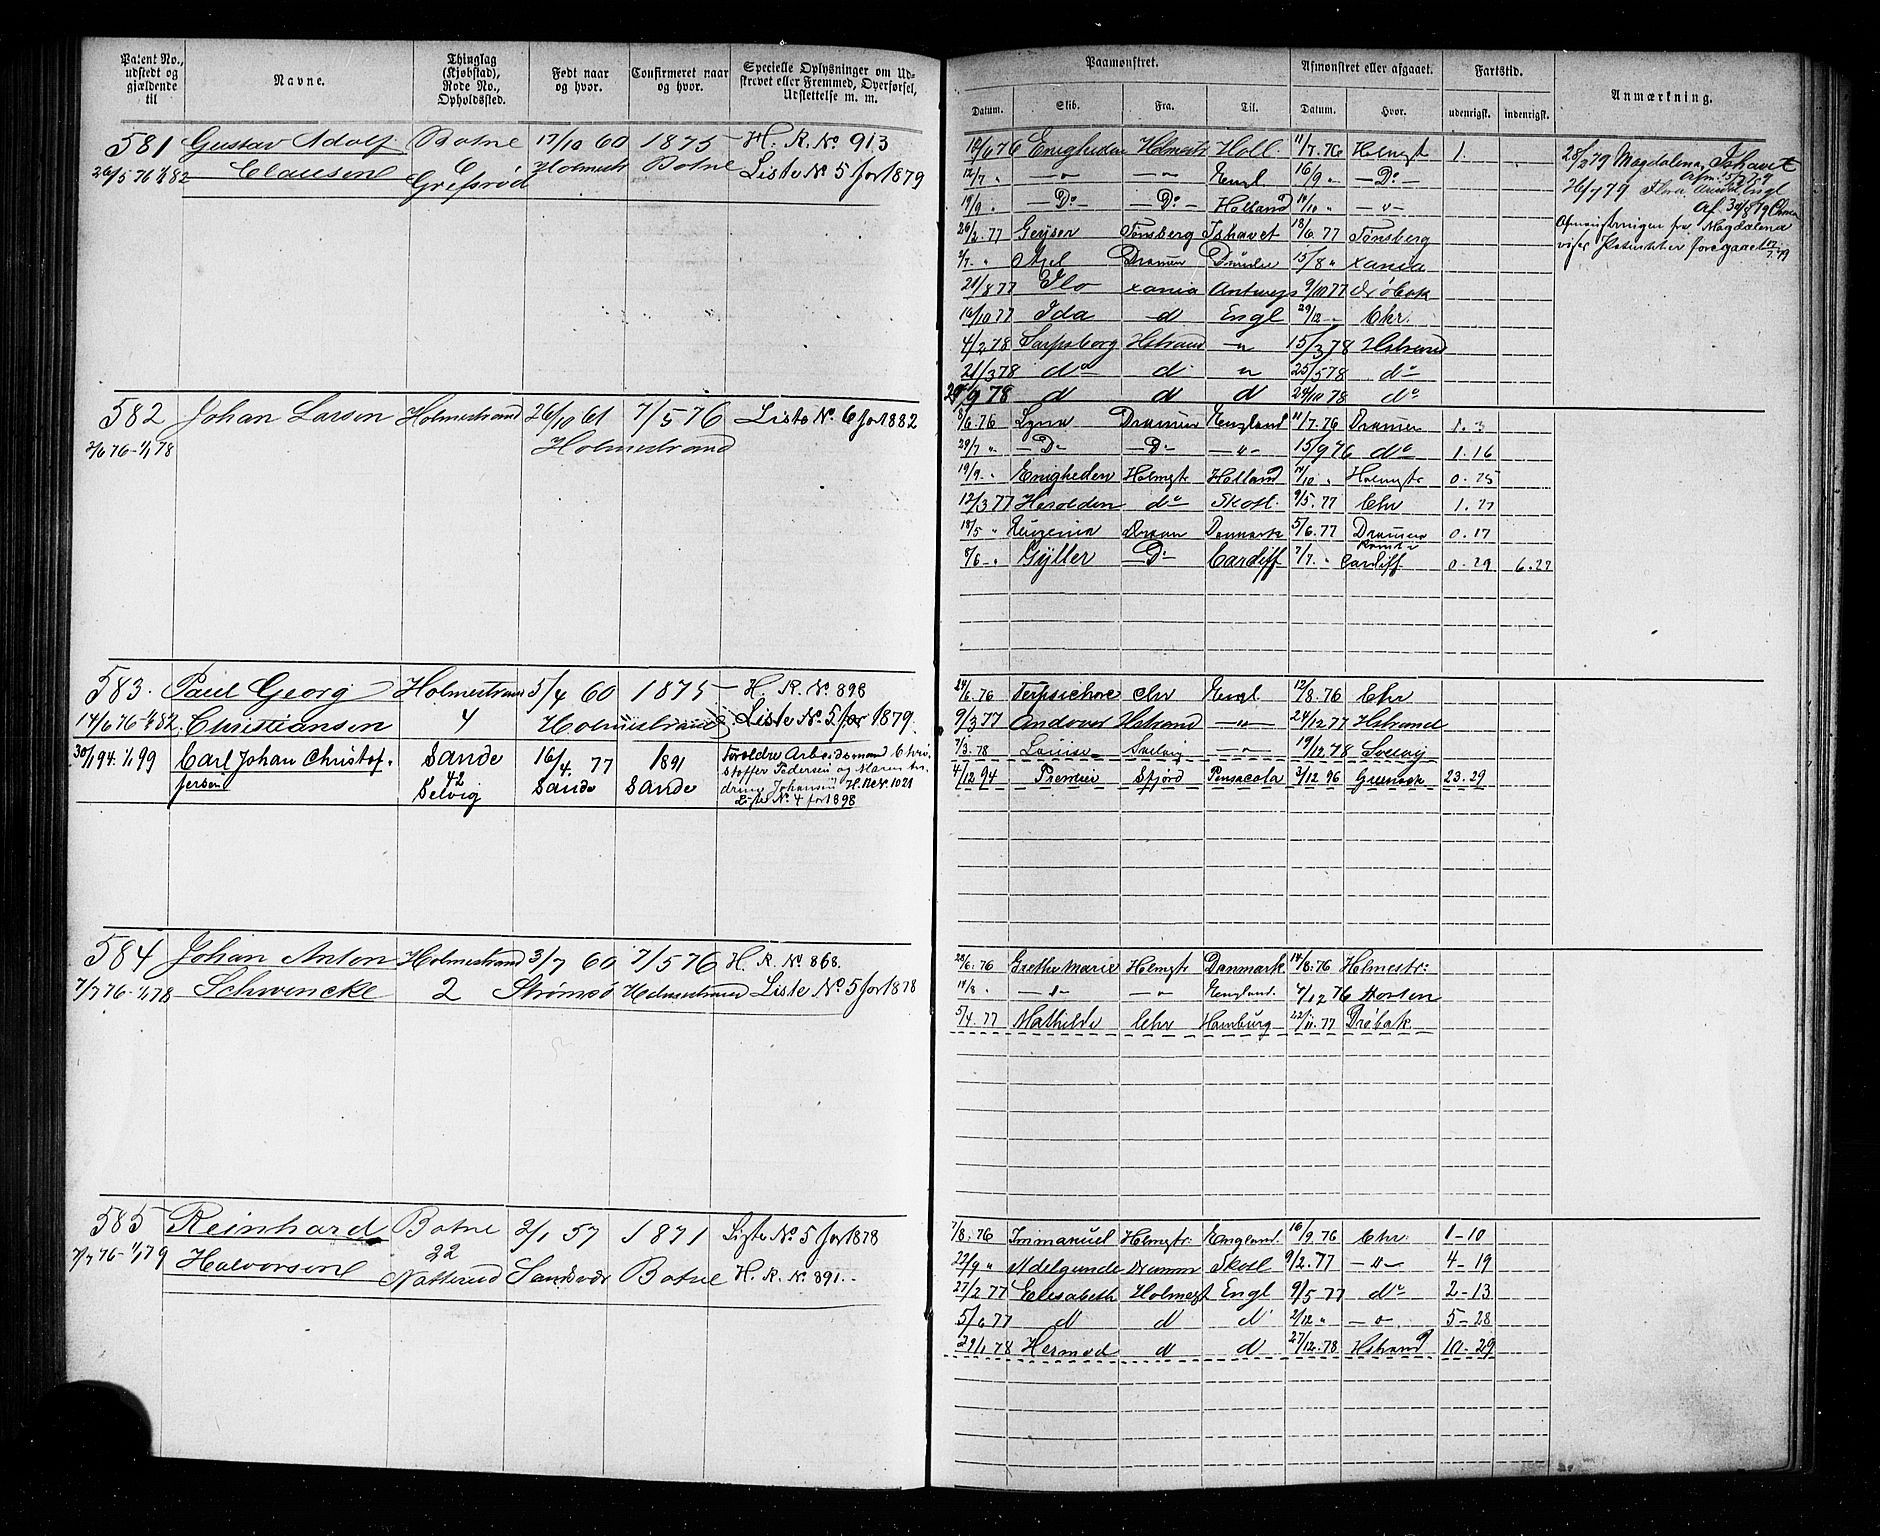 Patent No., udstedt og gjældende til
Navne.
Thinglag (Kjøbstad), Rode No., Opholdssted.
Født naar og hvor.
Confirmeret naar og hvor.
Specielle Oplysninger om Udskrevet eller Fremmed, Overførsel, Udslettelse m. m.
581 Gustav Adolf Botne 17/10 60 1875 H. R. No 913
26/5 76 1/1 82 Clausen 6 Holmestr Botne Liste No 5 for 1879
Grefsrød
582 Johan Larsen Holmestrand 26/10 61 7/5 76 Liste No. 6 for 1882
2/6 76 - 1/1 78 Holmestrand
583. Paul Georg Holmestrand 5/4 60 1875 H. R. No 898
14/6 76 - 1/1 82. Christiansen 4 Holmestrand Liste No. 5 for 1879.
30/1 94. 1/1 99 Carl Johan Christof- Sande 16/4. 77 1891 Foreldre Arbeidsmand Chri-
fersen 42 Sande Sande stoffer Pedersen og Maren
Selvig Johansen H. R. No. 1021
Liste No. 4 for 1898
584 Johan Anton Holmestrand 3/7 60 7/5 76 H. R. No 868.
7/7 76 - 1/1 78 Schwencke 2 Strømsø Holmestrand Liste No. 5 for 1878
585 Reinhard Botne 2/1 57 1871 Liste No. 5 for 1878
7/7 76 - 1/1 79 Halvorsen 22 Botne H. R. No. 891.
Natterud Sandsvær
Paamønstret.
Afmønstret eller afgaaet.
Fartstid.
Anmærkning.
Datum. Skib. Fra. Til. Datum. Hvor. udenrigsk. indenrigsk.
10/6 76 Enigheden Holmestr Holl. 11/7. 76 Holmest 1.
12/7 " — " — — " — Engl 16/9 " — Do —
19/9 " — Do — — Do — Holland 14/10 " — " —
26/2. 77 Geyser Tønsberg Ishavet 18/6. 77 Tønsberg
2/7. " Axel Drammen 15/8 " xania
21/8 77 Flo xania Antwerp 9/10 77 Drøbak
16/10 77 Ida d Engl 29/12 - Chr.
4/2 78 Sarpsborg Hstrand — " 15/3 78 Hstrand
21/3 78 do d " 25/5 78 do
78 d d d 24/10 78 do
28/2 79 Magdalena, Ishavet
Afm. 15/7 79
26/7 79 Flora Engl
Af 30/8 79
Afmønstringen fra Magdalena
viser Patentet foregaaet 17/7 79
8/6. 76 Lyna Drammen England 11/7. 76 Drammen 1. 3
29/7 " — Do — — Do — — " — 15/9 76 do 1. 16
19/9. " Enigheden Holmestr Holland 14/10 " Holmestr 0. 25
12/3 77 Heralden do Skotl. 9/5. 77 Chr 1. 27
18/5 " Eugenia Dramn Danmark 5/6. 77 Drammen 0. 17
8/6 - " Gyller — Do — Cardiff 7/7. " Cardiff 0. 29 6. 27
24/6. 76 Terpsichore Chr Engl 12/8. 76 Chr
9/3 77 Andover Hstrand — " — 24/12 77 Hstrand
7/3. 78 Louise Svelvig — " — 19/12 78 Svelvig
4/12 94 Sfjord Pensacola 3/12 96 Greenock 23. 29
28/6. 76 Grethe Marie Holmstr Danmark 14/8. 76 Holmestr:
19/8 " — " — — " England. 4/12 76 Horten
5/4. 77 Mathilde Chr Hamburg 22/11. 77 Drøbak
7/8. 76 Immanuel Holmstr: England. 16/9. 76 Chr. 1-10
22/9 " Adelgunde Drammen Skotl 9/2. 77 — " — 4-19
27/2 77 Elisabeth Holmest Engl 9/5 77 do 2-13
5/6 77 d d d 2/12 " — " — 5-28
29/1 78 Hermod d d 27/12. 78 Hstrand 10-29